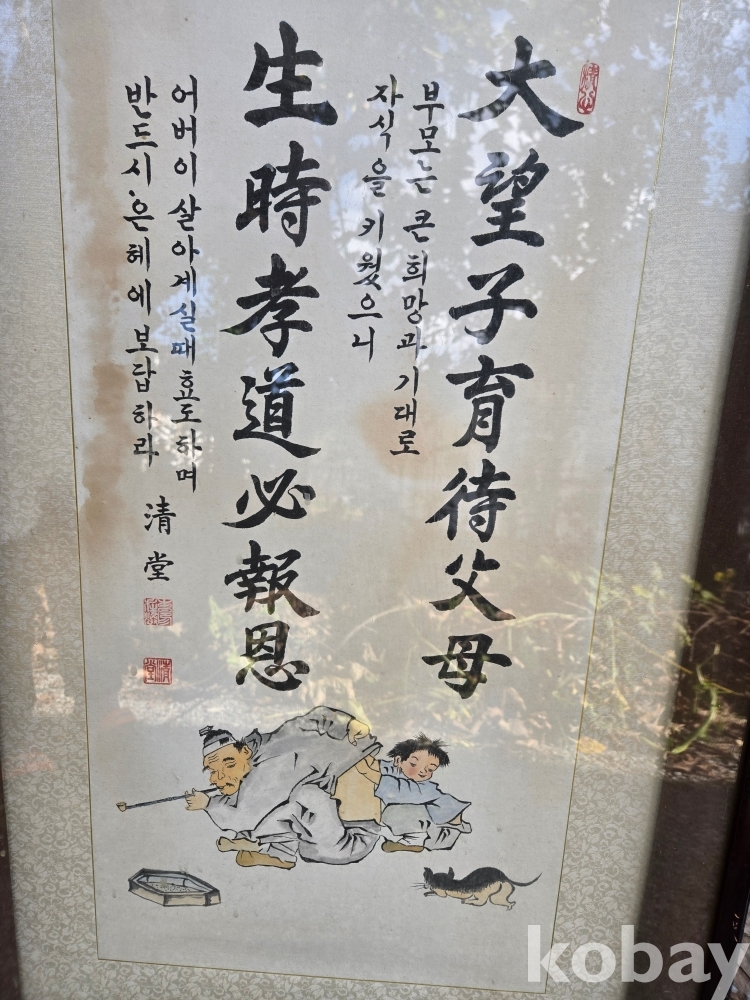 大望子育待父母
부모는 큰 희망과 기대로
자식을 키웠으니
生時孝道必報恩
어버이 살아계실때 효도하며
반드시 은혜에 보답하라
清堂
kobay